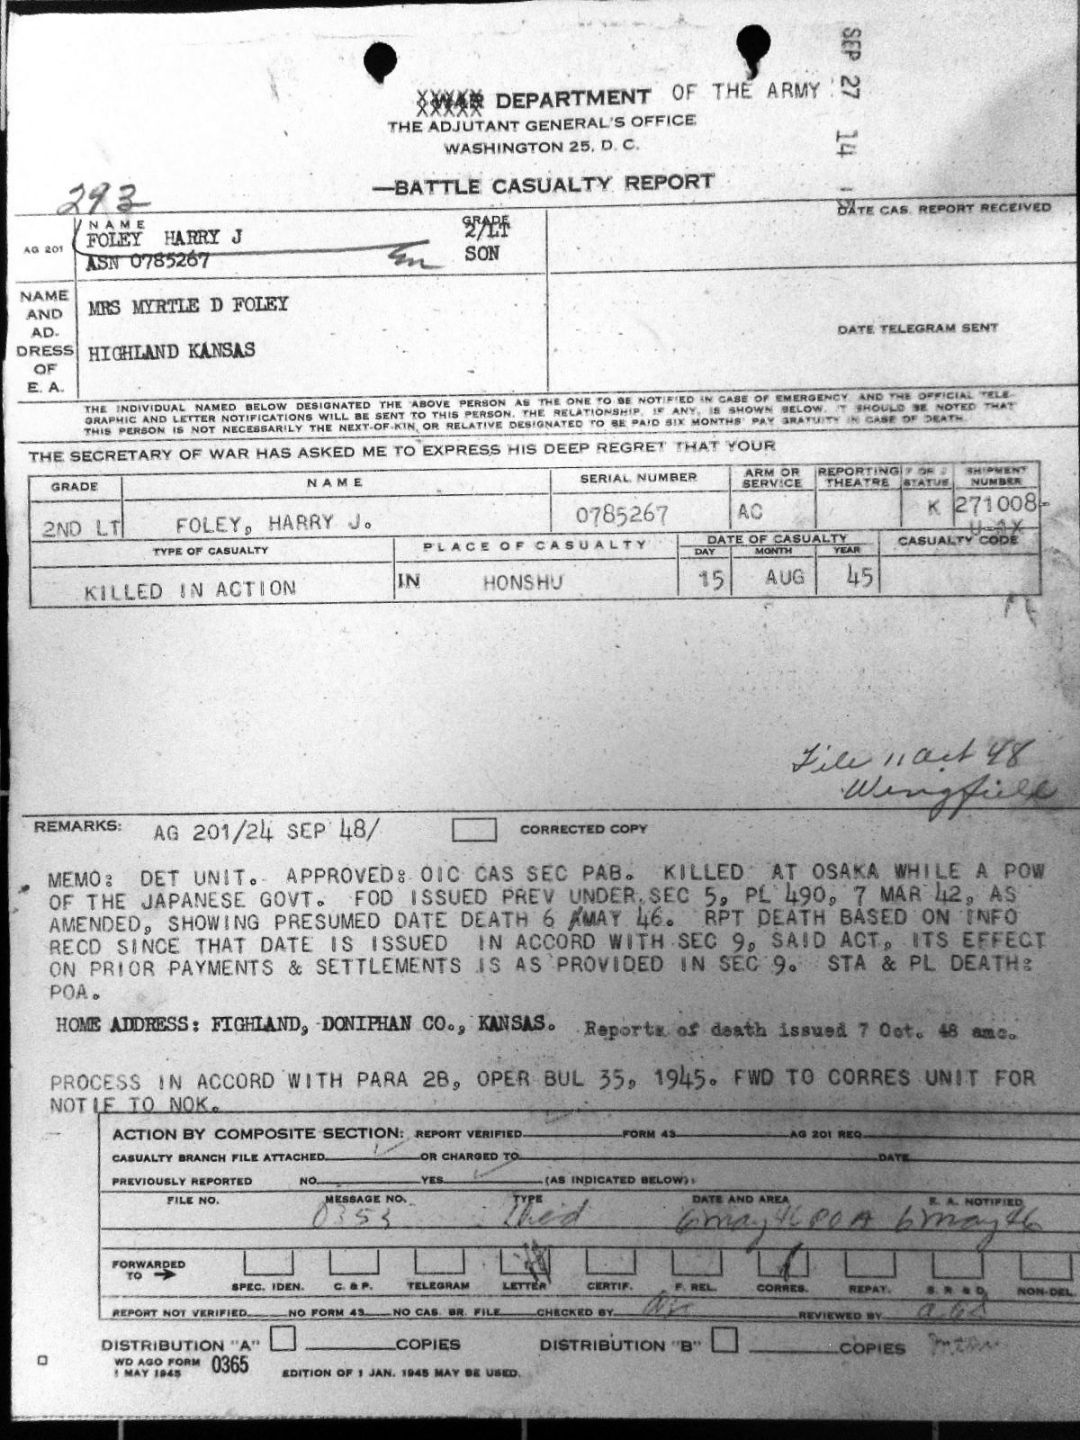 SEP 27 14
XXXXX WAR DEPARTMENT OF THE ARMY
THE ADJUTANT GENERAL'S OFFICE
WASHINGTON 25, D. C.
—BATTLE CASUALTY REPORT
293
DATE CAS. REPORT RECEIVED
AG 201
NAME
GRADE
FOLEY HARRY J 2/LT
ASN 0785267 SON
NAME AND AD- DRESS OF E. A.
MRS MYRTLE D FOLEY
HIGHLAND KANSAS
DATE TELEGRAM SENT
THE INDIVIDUAL NAMED BELOW DESIGNATED THE ABOVE PERSON AS THE ONE TO BE NOTIFIED IN CASE OF EMERGENCY, AND THE OFFICIAL TELE-
GRAPHIC AND LETTER NOTIFICATIONS WILL BE SENT TO THIS PERSON. THE RELATIONSHIP, IF ANY, IS SHOWN BELOW. IT SHOULD BE NOTED THAT
THIS PERSON IS NOT NECESSARILY THE NEXT-OF-KIN OR RELATIVE DESIGNATED TO BE PAID SIX MONTHS' PAY GRATUITY IN CASE OF DEATH.
THE SECRETARY OF WAR HAS ASKED ME TO EXPRESS HIS DEEP REGRET THAT YOUR
GRADE NAME SERIAL NUMBER ARM OR SERVICE REPORTING THEATRE STATUS SHIPMENT NUMBER
2ND LT FOLEY, HARRY J. 0785267 AC K 271008-
TYPE OF CASUALTY PLACE OF CASUALTY DATE OF CASUALTY CASUALTY CODE
DAY MONTH YEAR
KILLED IN ACTION IN HONSHU 15 AUG 45
File 11 Oct 48
Wingfield
REMARKS: AG 201/24 SEP 48/ CORRECTED COPY
MEMO: DET UNIT. APPROVED: OIC CAS SEC PAB. KILLED AT OSAKA WHILE A POW
OF THE JAPANESE GOVT. FOD ISSUED PREV UNDER SEC 5, PL 490, 7 MAR 42, AS
AMENDED, SHOWING PRESUMED DATE DEATH 6 MAY 46. RPT DEATH BASED ON INFO
RECD SINCE THAT DATE IS ISSUED IN ACCORD WITH SEC 9, SAID ACT, ITS EFFECT
ON PRIOR PAYMENTS & SETTLEMENTS IS AS PROVIDED IN SEC 9. STA & PL DEATH:
POA.
HOME ADDRESS: FIGHLAND, DONIPHAN CO., KANSAS. Reports of death issued 7 Oct. 48 amc.
PROCESS IN ACCORD WITH PARA 2B, OPER BUL 35, 1945. FWD TO CORRES UNIT FOR
NOTIF TO NOK.
ACTION BY COMPOSITE SECTION: REPORT VERIFIED FORM 43 AG 201 REQ
CASUALTY BRANCH FILE ATTACHED OR CHARGED TO DATE
PREVIOUSLY REPORTED NO YES (AS INDICATED BELOW):
FILE NO. MESSAGE NO. TYPE DATE AND AREA E. A. NOTIFIED
0353 Died 6 may 46 POA 6 may 46
FORWARDED TO
SPEC. IDEN. C. & P. TELEGRAM LETTER CERTIF. F. REL. CORRES. REPAT. S. R. & D. NON-DEL.
REPORT NOT VERIFIED NO FORM 43 NO CAS. BR. FILE CHECKED BY REVIEWED BY
DISTRIBUTION "A" COPIES DISTRIBUTION "B" COPIES
WD AGO FORM 0365
1 MAY 1945
EDITION OF 1 JAN. 1945 MAY BE USED.